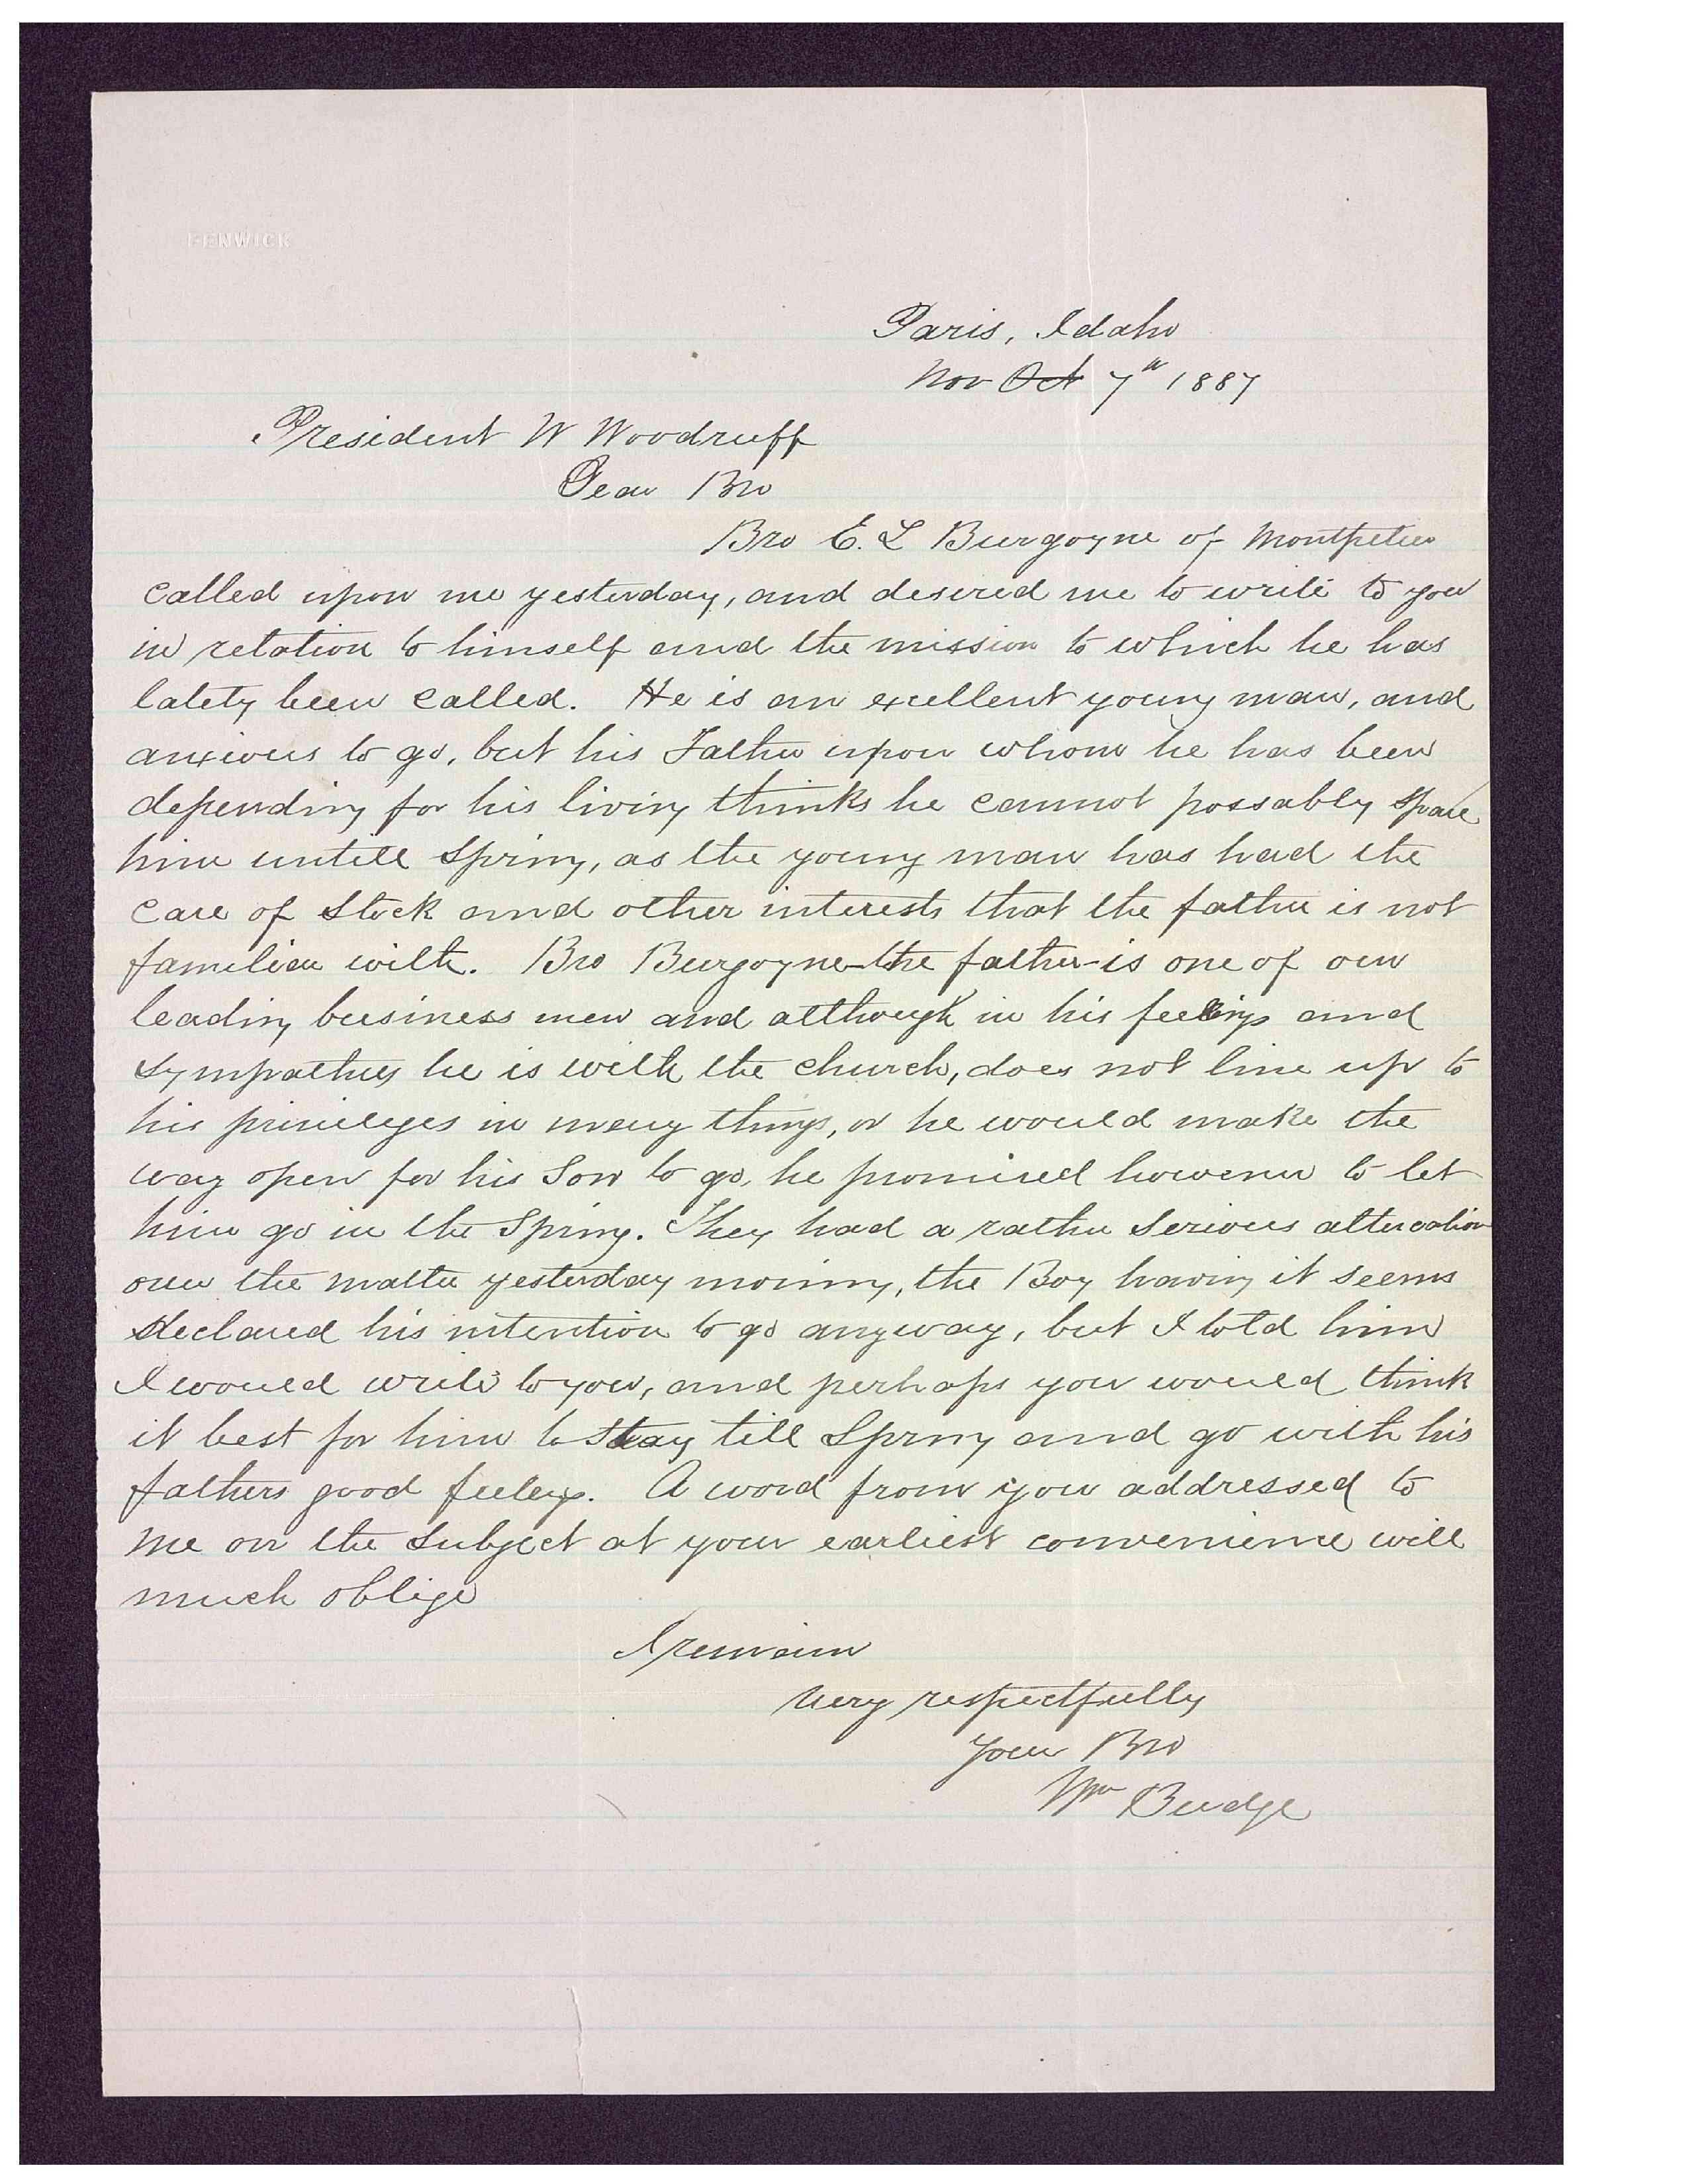 FENWICK
Paris, Idaho
Nov Oct 7th 1887
President W Woodruff
Dear Bro
Bro E. L Burgoyne of Montpelier
called upon me yesterday, and desired me to write to you
in relation to himself and the mission to which he has
lately been called. He is an excellent young man, and
anxious to go, but his Father upon whom he has been
depending for his living thinks he cannot possably spare
him untill Spring, as the young man has had the
care of stock and other interests that the father is not
familiar with. Bro Burgoyne-the father-is one of our
leading business men and although in his feelings and
sympathies he is with the church, does not live up to
his privileges in many things, or he would make the
way open for his Son to go, he promised however to let
him go in the Spring. They had a rather serious altercation
over the matter yesterday morning, the Boy having it seems
declared his intention to go anyway, but I told him
I would write to you, and perhaps you would think
it best for him to stay till Spring and go with his
fathers good feelings. A word from you addressed to
me on the subject at your earliest convenience will
much oblige
I remain
Very respectfully
Your Bro
Wm Budge